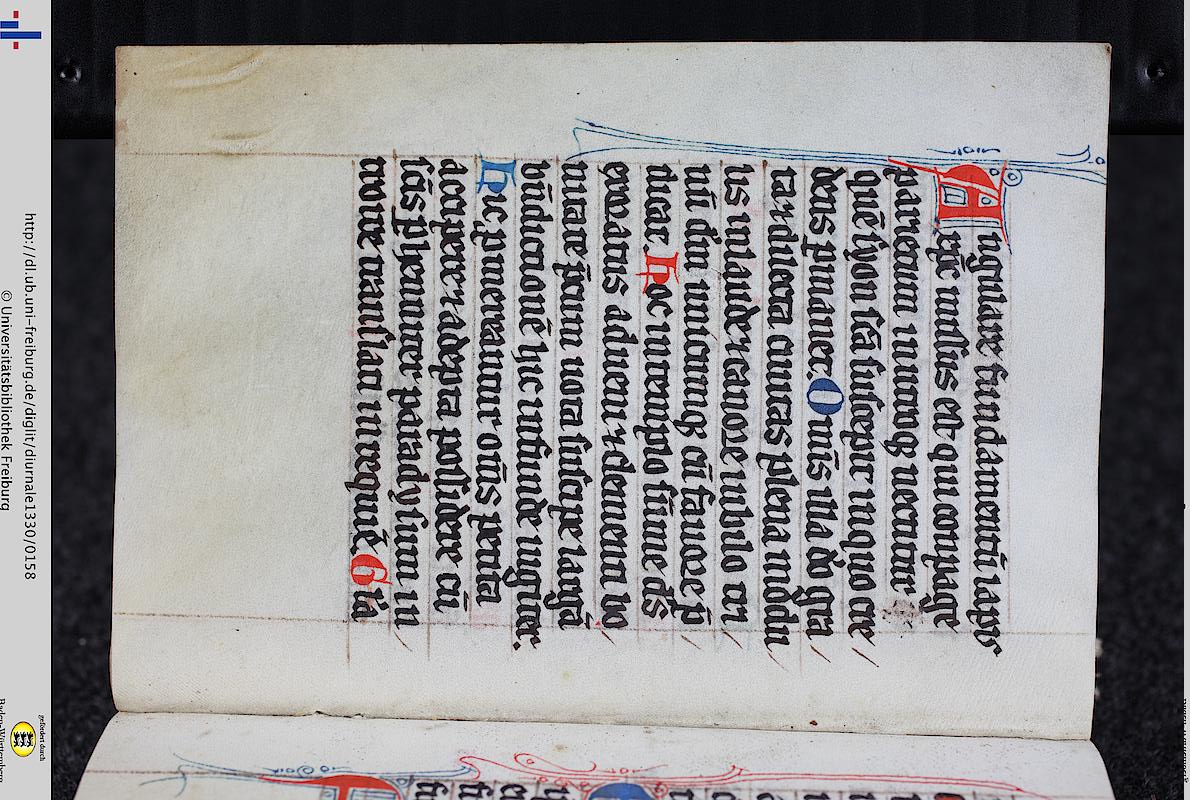 Angulare fundamentū lapis
xp̄c missus est qui compage
parietum in utroq; nectitur
quē syon sc̄a suscepit in quo cre
dens permanet. Omīs illa do sacra
et dilecta ciuitas plena modu
lis in laude et canore iubilo tri
nū dm̄ unicumq; cū fauore p̄
dicat Hoc in templo sume ds̄
exoratus adueni et clementi bo
nitate precum uota suscipe largā
bn̄dictionē hic infunde iugiter.
Hic promereantur om̄s petita
accipere et adepta possidere cū
sc̄is p̄henniter paradysum in
troire translati in requiē Glā
http://dl.ub.uni-freiburg.de/diglit/diurnale1330/0158
© Universitätsbibliothek Freiburg
gefördert durch
Baden-Württemberg